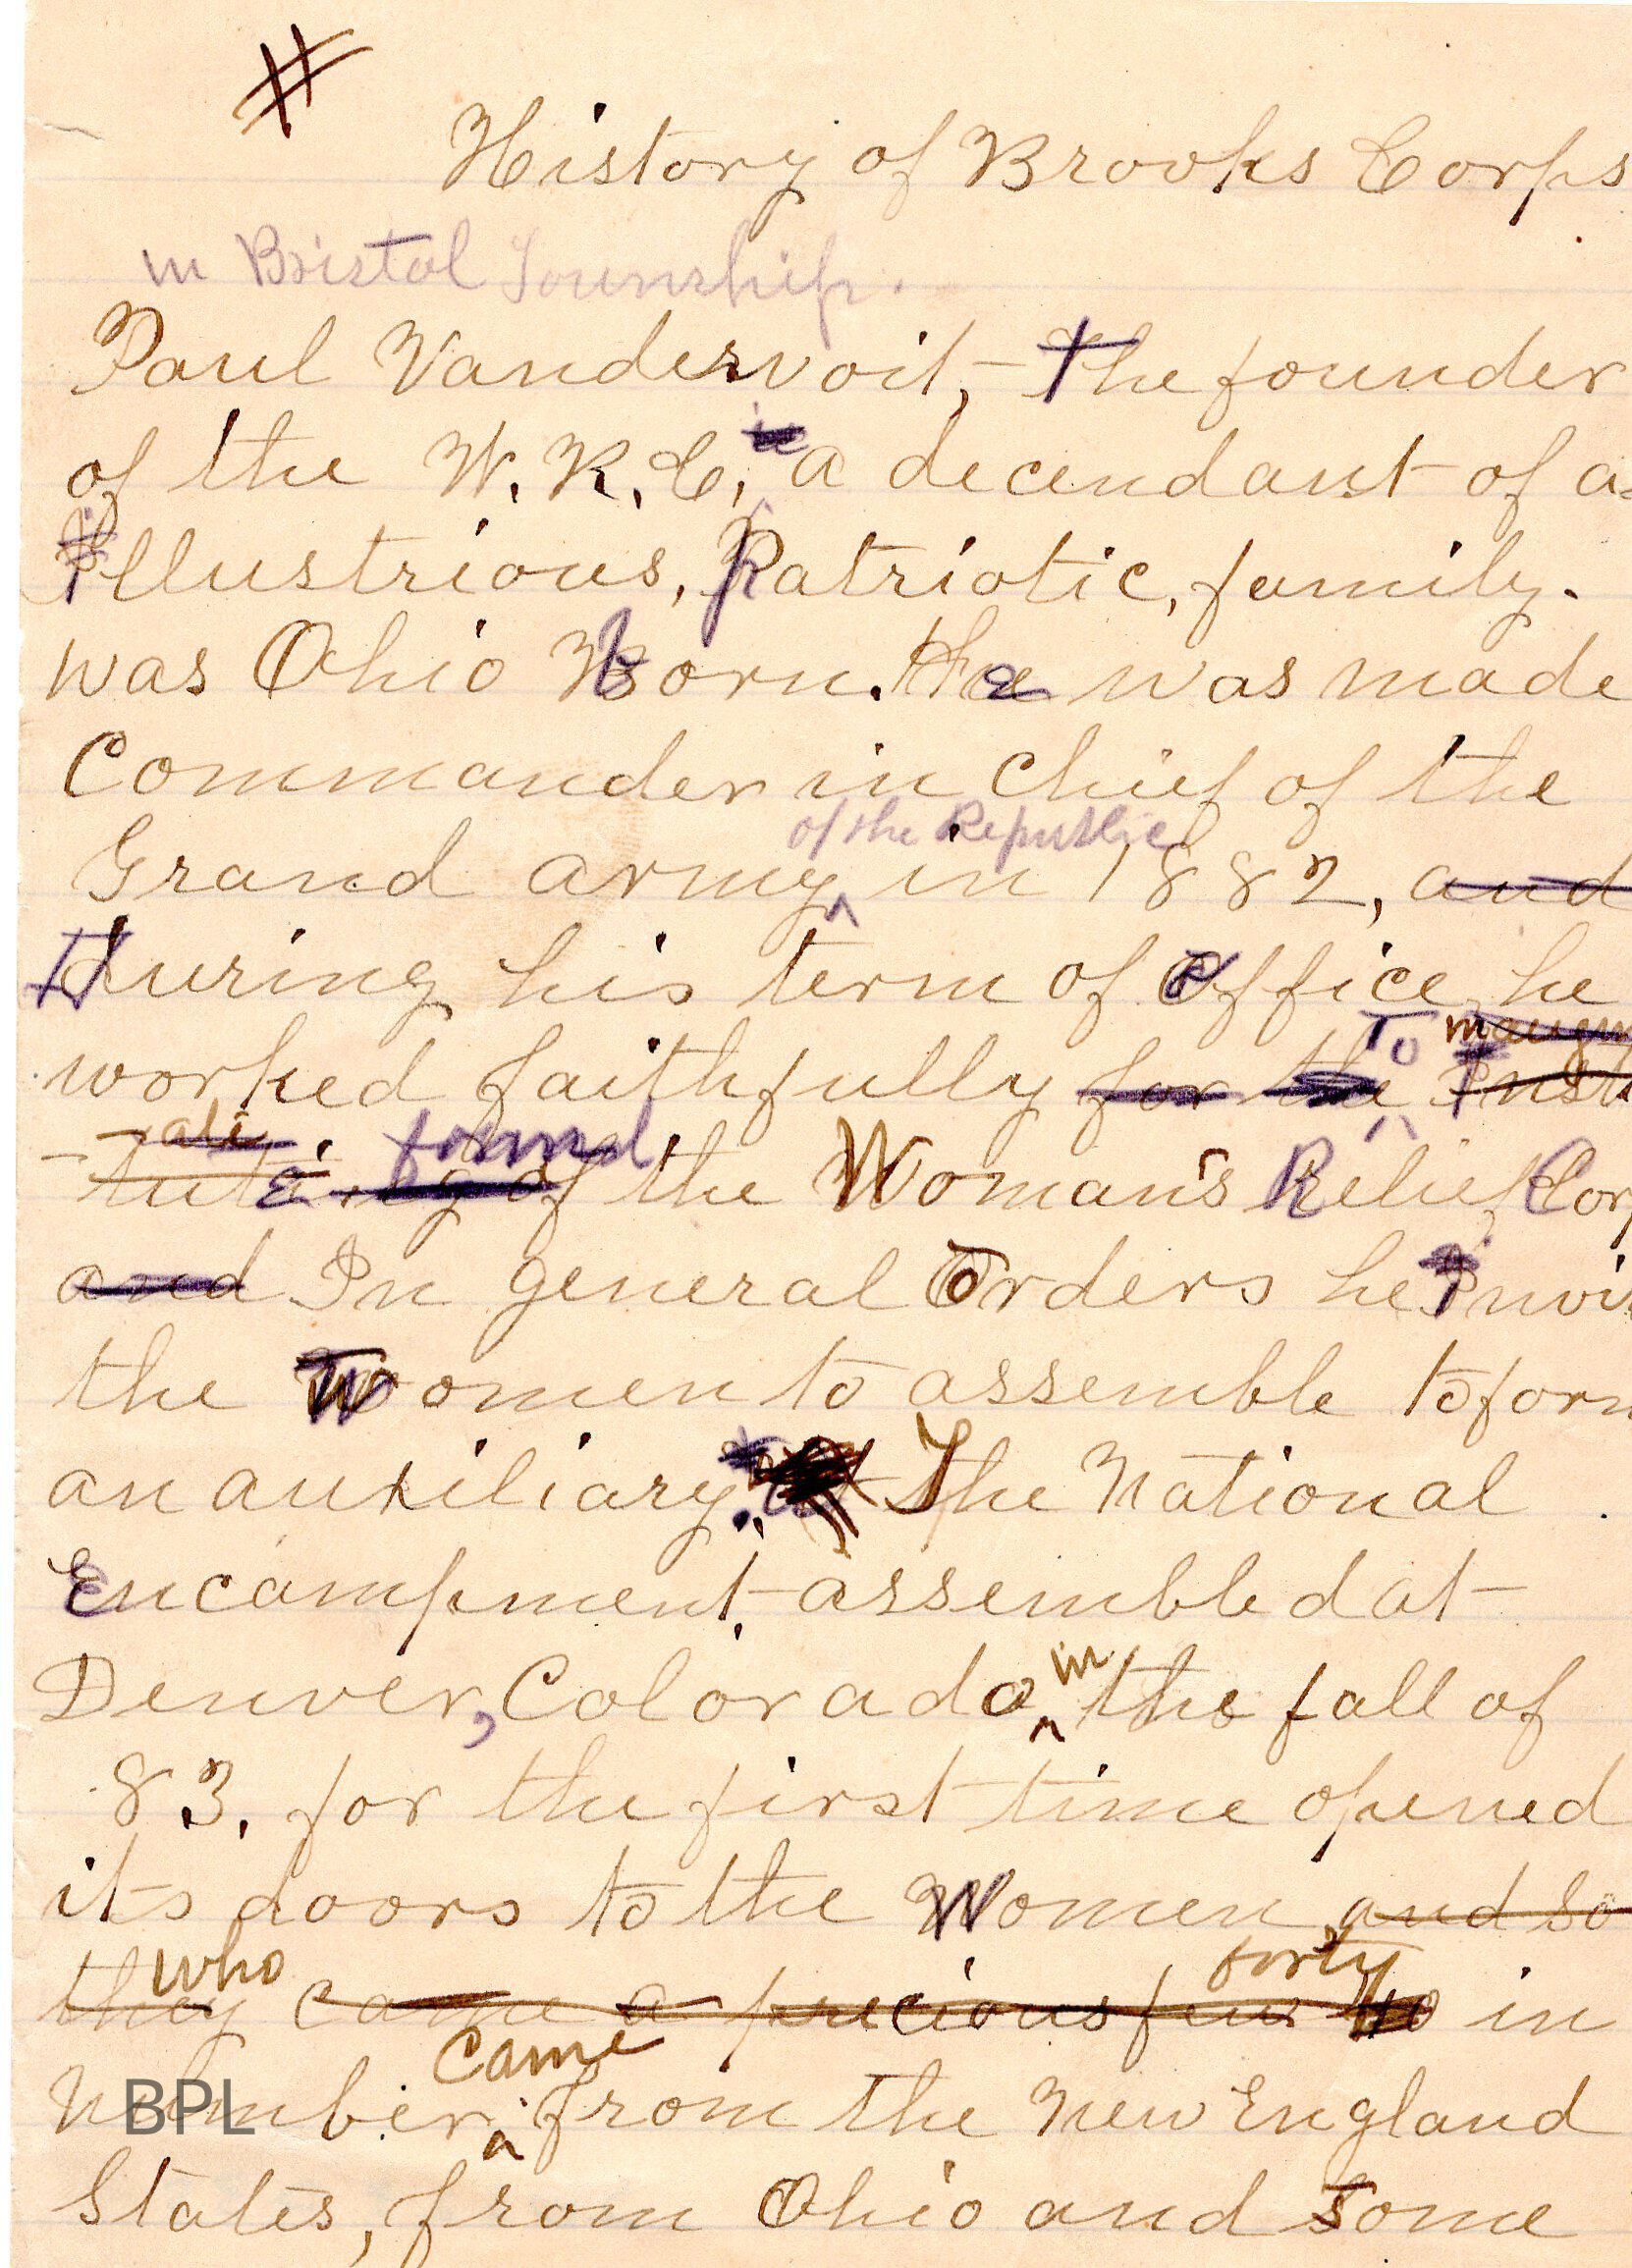 #
History of Brooks Corps
in Bristol Township.
Paul Vandervoit, the founder
of the W.R.C., a decendant of a
illustrious, patriotic, family.
was Ohio born. He was made
Commander in Chief of the
of the Republic
Grand army in 1882, and
During his term of office he
To
worked faithfully for the Inst
found
of the Woman's Relief Cor
and In general Orders he invi
the women to assemble to for
an auxiliary. The National
Encampment, assembled at
in
Denver, Colorado the fall of
83. for the first time opened
its doors to the Women, and so
who forty
they came a precious few 40 in
came
Number from the New England
BPL
States, from Ohio and some